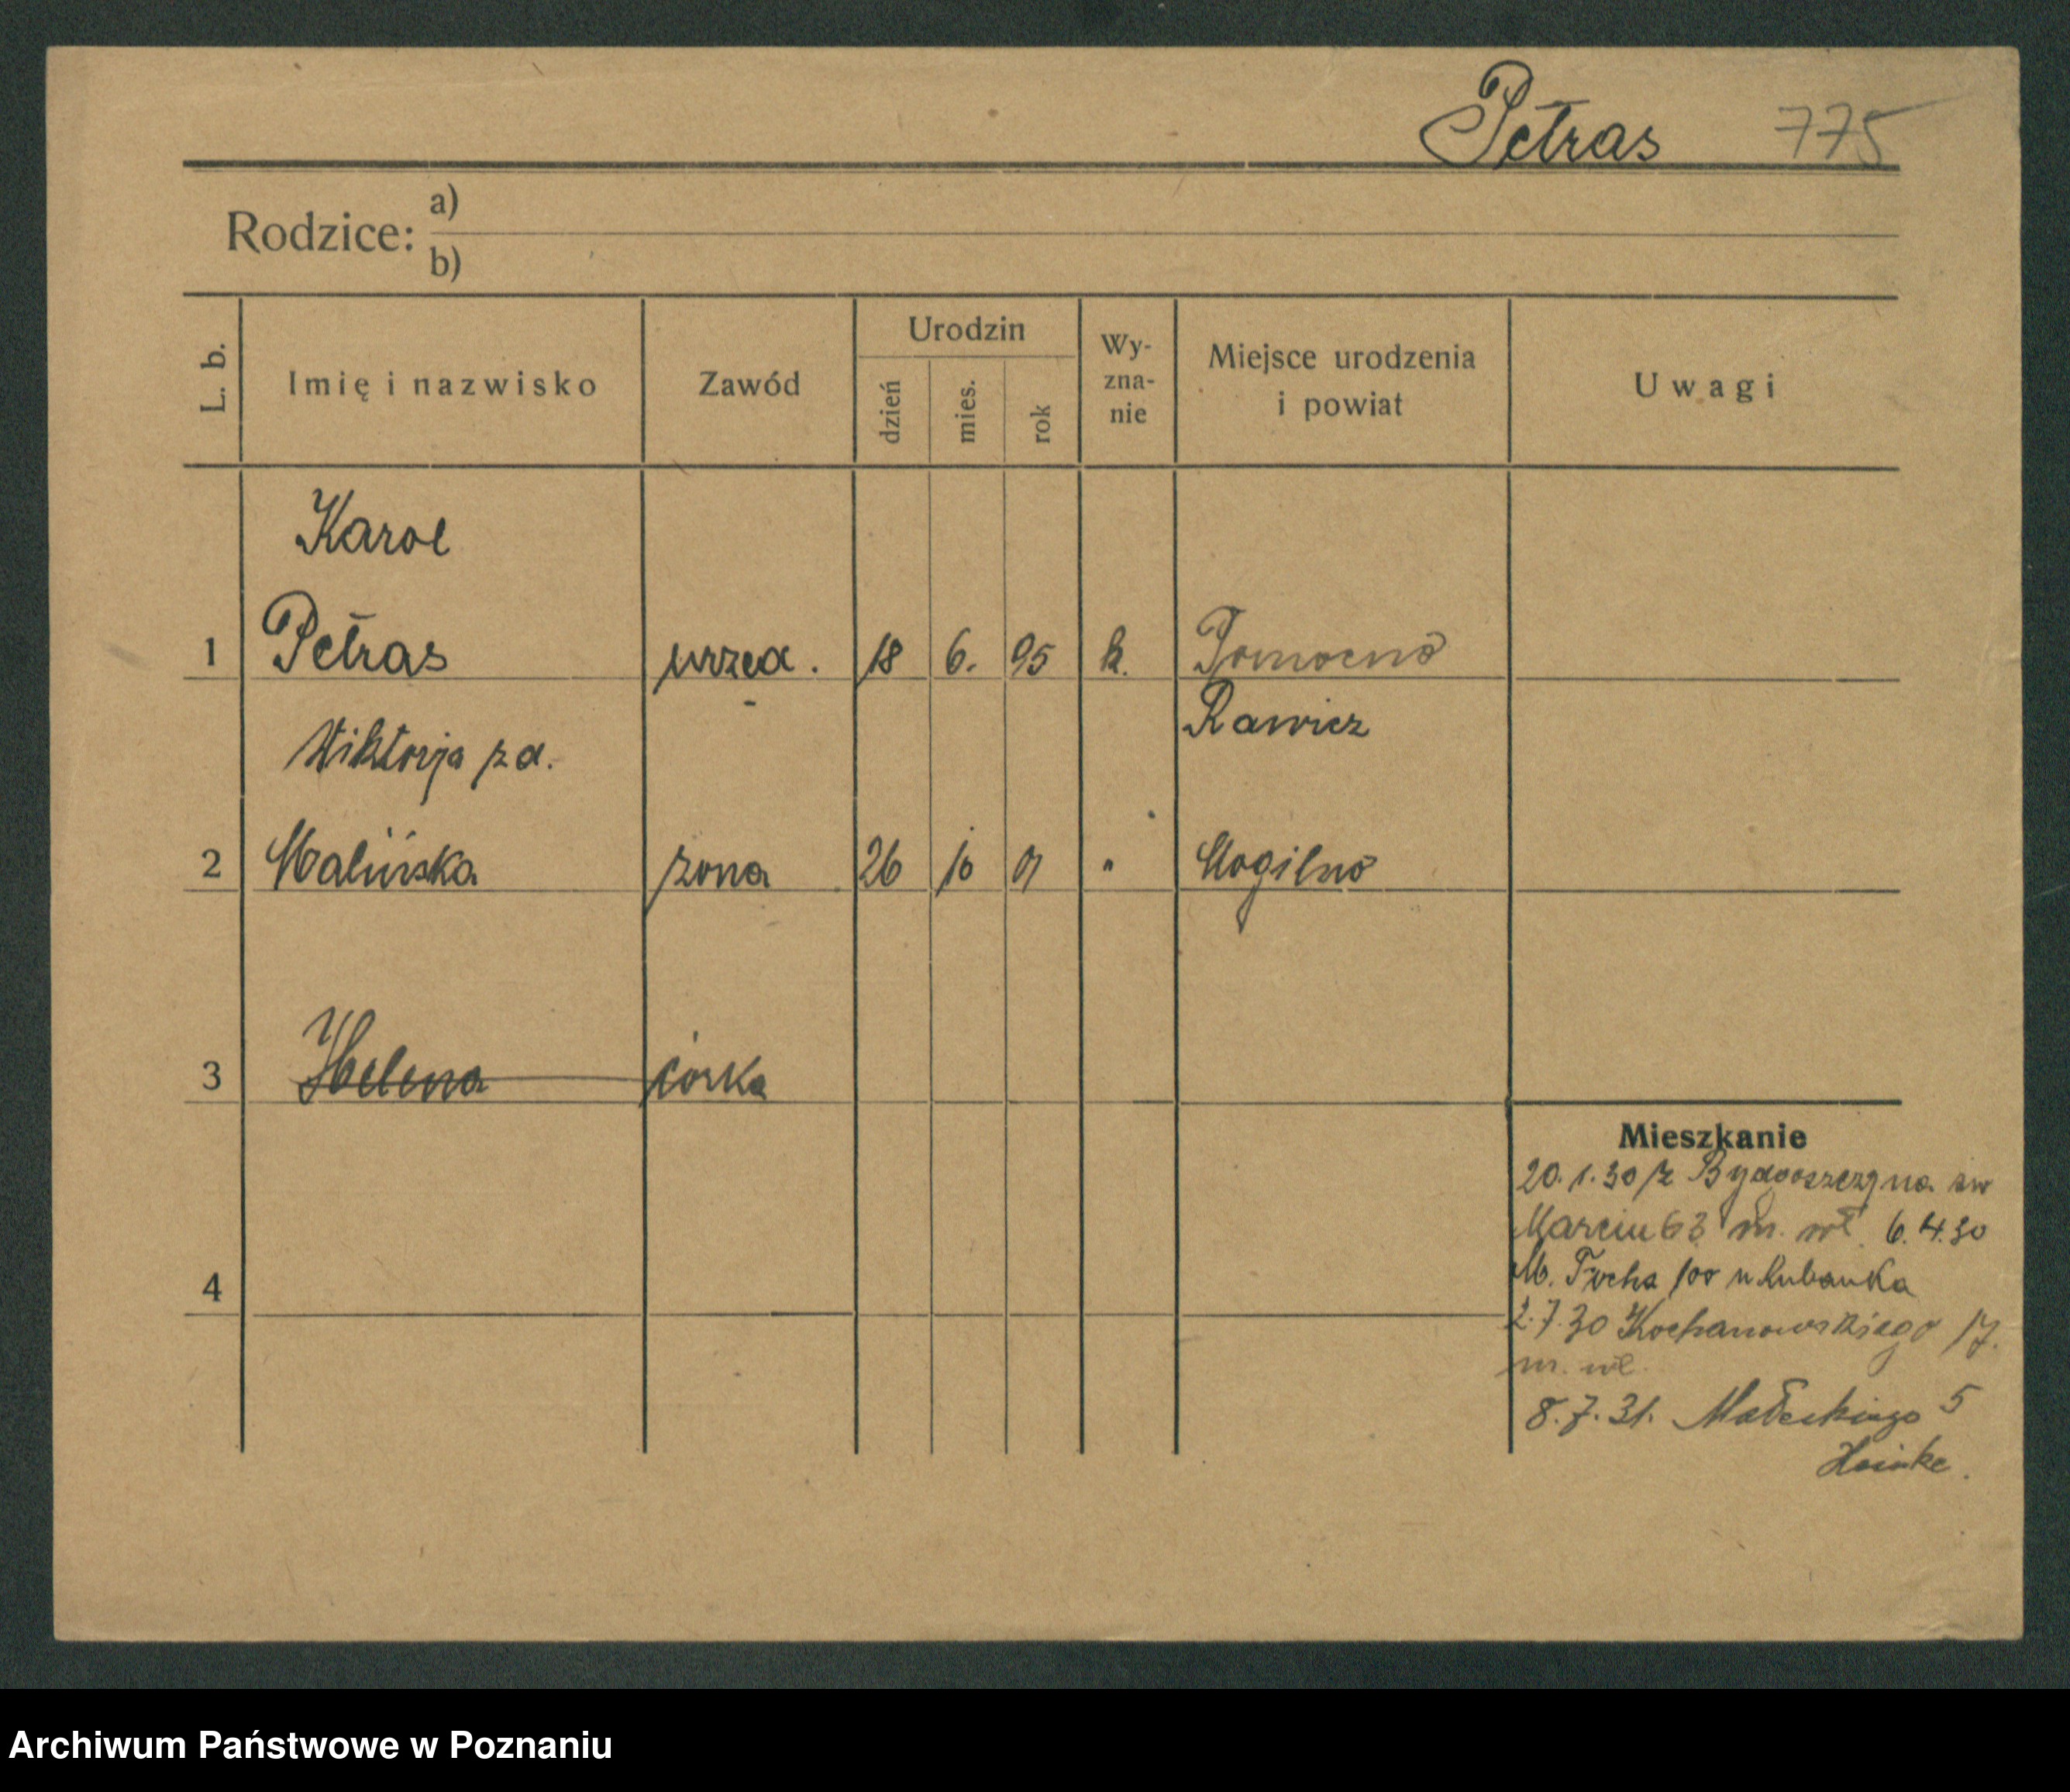 Petras 775
Rodzice: a)
b)
L. b. Imię i nazwisko Zawód Urodzin dzień mies. rok Wy-zna-nie Miejsce urodzenia i powiat Uwagi
Karol
1 Petras urzęd. 18 6. 95 k.
Rawicz
Wiktorja zd.
2 Malińska żona 26 10 01 " Mogilno
3 Helena córka
4
Mieszkanie
20.1.30 z Bydgoszczy na św
Marcin 63 m. wł. 6.4.30
M. Focha 100 u Kubanka
2.7.30 Kochanowskiego 17.
m. wł.
8.7.31. Małeckiego 5
Heinke.
Archiwum Państwowe w Poznaniu